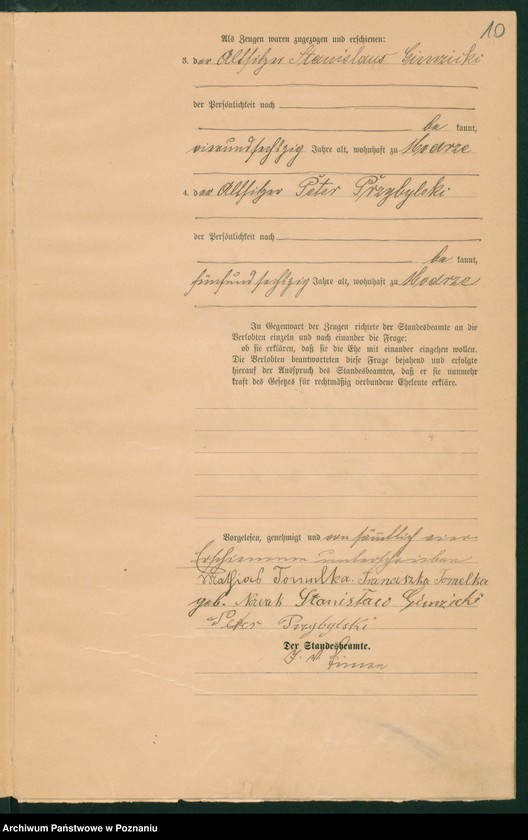 10
Als Zeugen waren zugezogen und erschienen:
3. der Altsitzer Stanislaus
der Persönlichkeit nach
be kannt,
vierundsechszig Jahre alt, wohnhaft zu Modrze
4. der Altsitzer Peter Przybylski
der Persönlichkeit nach
be kannt,
fünfundsechszig Jahre alt, wohnhaft zu Modrze
In Gegenwart der Zeugen richtete der Standesbeamte an die
Verlobten einzeln und nach einander die Frage:
ob sie erklären, daß sie die Ehe mit einander eingehen wollen.
Die Verlobten beantworteten diese Frage bejahend und erfolgte
hierauf der Ausspruch des Standesbeamten, daß er sie nunmehr
kraft des Gesetzes für rechtmäßig verbundene Eheleute erkläre.
Vorgelesen, genehmigt und von sämtlich
Erschienenen unterschrieben
Mathias Franciszka Tomelka
geb. Nowak Stanisław
Peter Przybylski
Der Standesbeamte.
Archiwum Państwowe w Poznaniu